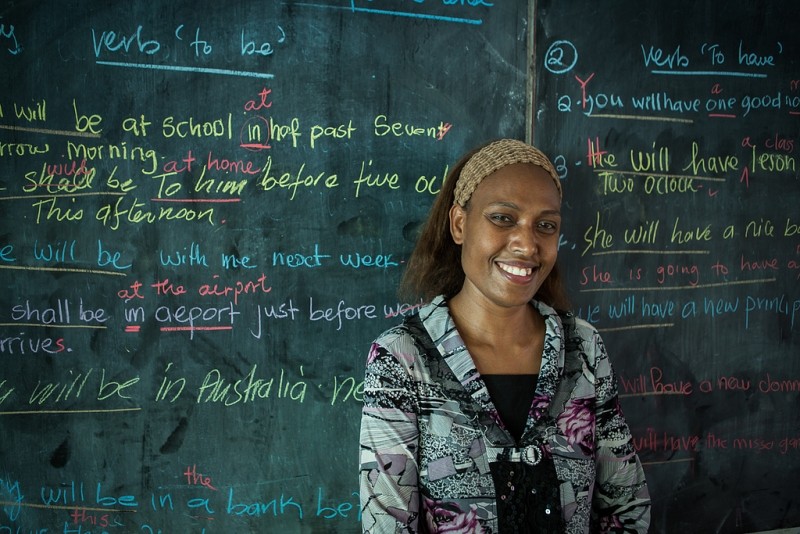 verb 'to be'
will be at school in haf past Seven
at
orrow morning.
shall be To him before five oc
at home
This afternoon.
e will be with me next week.
at the airport
shall be in aeport just before we
rrives.
will be in Australia ne
the
will be in a bank be
this
② verb 'To have'
a
2. you will have one good
a class
3. He will have lesson
Two oclock
she will have a nice
she is going to have a
we will have a new princip
will have a new
will have the